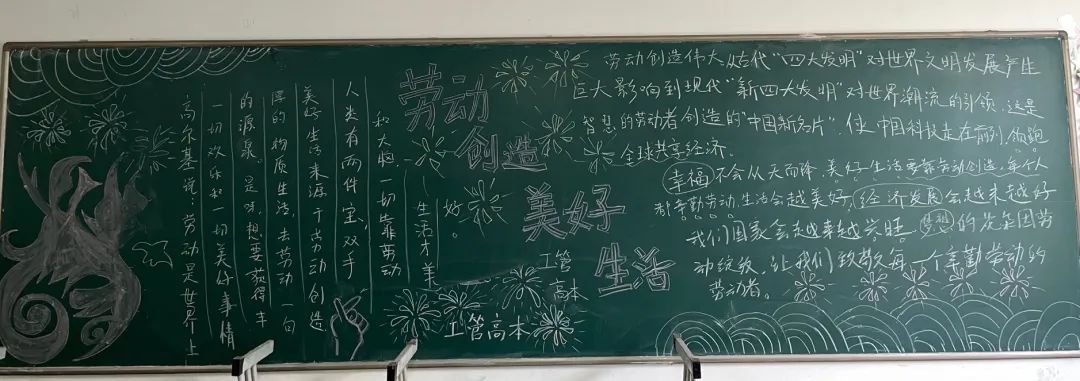 高尔基说:劳动是世界上
一切欢乐和一切美好事情
的源泉。是呀,想要获得丰
厚的物质生活,去劳动一句
美好生活来源于劳动创造
人类有两件宝,双手
和大脑,一切靠劳动
生活才美
好。
劳动
创造
美好
生活
工管
高本
工管高本
劳动创造伟大从古代“四大发明”对世界文明发展产生
巨大影响到现代“新四大发明”对世界潮流的引领,这是
智慧的劳动者创造的“中国新名片”,使中国科技走在前列,领跑
全球共享经济。
幸福不会从天而降,美好生活要靠劳动创造,每个人
都辛勤劳动,生活会越美好,经济发展会越来越好
我们国家会越来越兴旺。梦想的花朵因劳
动绽放,让我们致敬每一个辛勤劳动的
劳动者。